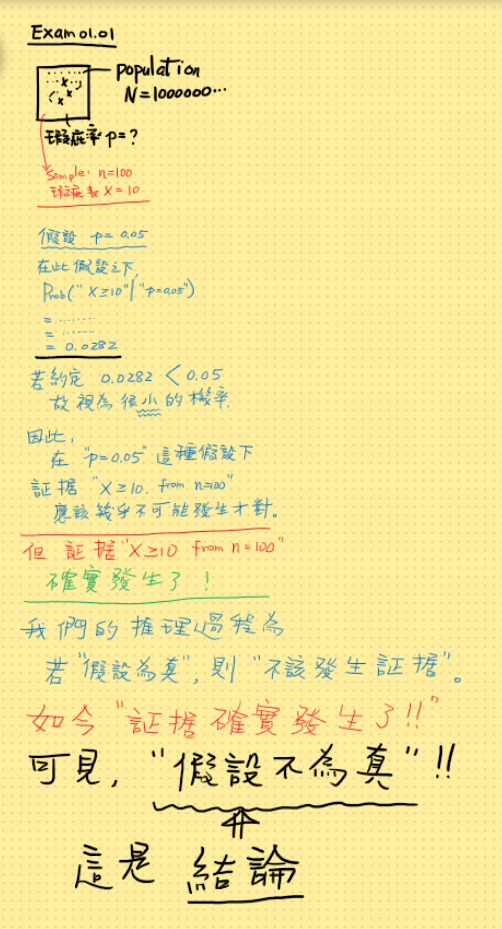 Exam 01.01
population
N=1000000...
瑕疵率 p=?
Sample: n=100
瑕疵數 X=10
假設 p=0.05
在此假設之下,
Prob("X≥10"|"p=0.05")
= ........
= .......
= 0.0282
若約定 0.0282 < 0.05
故視為很小的機率,
因此,
在 "p=0.05" 這種假設下
証据 "X≥10, from n=100"
應該幾乎不可能發生才對。
但 証据 "X≥10 from n=100"
確實發生了!
我們的推理過程為
若"假設為真",則"不該發生証据"。
如今"証据確實發生了!!"
可見,"假設不為真"!!
這是 結論